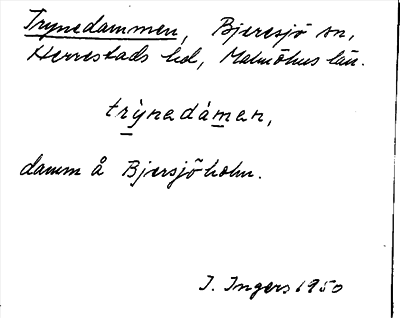 Trynedammen, Bjeresjö sn,
Herrestads hd, Malmöhus län.
trỳnedámen,
damm å Bjersjöholm.
I. Ingers 1950